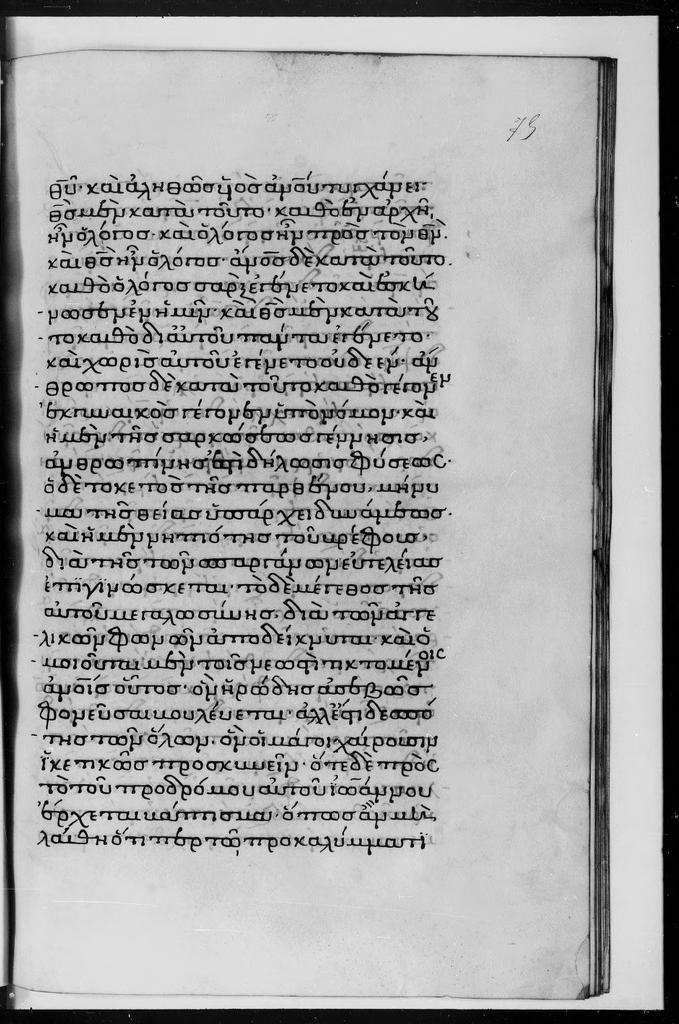 75
θ̅υ̅· καὶ ἀληθῶς υἱὸς ἀν̅ο̅υ̅ τυγχάνει·
θ̅ς̅ μὲν κατὰ τοῦτο· καθὸ ἐν ἀρχῆ
ἦν ὁ λόγος· καὶ ὁ λόγος ἦν πρὸς τὸν θ̅ν̅.
καὶ θ̅ς̅ ἦν ὁ λόγος· ἀν̅ο̅ς̅ δὲ κατὰ τοῦτο.
καθὸ ὁ λόγος σὰρξ ἐγένετο καὶ ἐσκή
νωσεν ἐν ἡμῖν· καὶ θ̅ς̅ μὲν κατὰ τοῦ
το καθὸ δι αὐτοῦ πάντα ἐγένετο·
καὶ χωρὶς αὐτοῦ ἐγένετο οὐδε ἕν· ἄν
θρωπος δὲ κατὰ τοῦτο καθὸ γέγονεν
ἐκ γυναικὸς γέγονεν ὑπὸ νόμον· καὶ
ἡ μὲν τῆς σαρκώσεως γέννησις,
ἀνθρωπίνης ἐστὶ δήλωσις φύσεως·
ὁ δὲ τοκετὸς τῆς παρθένου, μήνυ
μα τῆς θείας ὑπάρχει δυνάμεως.
καὶ ἡ μὲν νηπιότης τοῦ βρέφους,
διὰ τῆς τῶν σπαργάνων εὐτελείας
ἐπιγινώσκεται· τὸ δὲ μέγεθος τῆς
αὐτοῦ μεγαλωσύνης, διὰ τῶν ἀγγε
λικῶν φωνῶν ἀποδείκνυται· καὶ ὁ
μοιοῦται μὲν τοῖς νεωστὶ τικτομένοις
ἀν̅ο̅ι̅ς̅ οὗτος· ὃν ἡρώδης ἀσεβῶς
φονεῦσαι βουλέυεται· ἀλλ ἐστὶ δεσπό
της τῶν ὅλων, ὃν οἱ μάγοι χαίρουσιν
ἱκετικῶς προσκυνεῖν· ὅτε δὲ πρὸς
τὸ τοῦ προδρόμου αὐτοῦ ἰωάννου
ἔρχεται βάπτισμα· ὅπως ἂν μὴ
λάθη ὅτιπερ τῶ προκαλύμματι